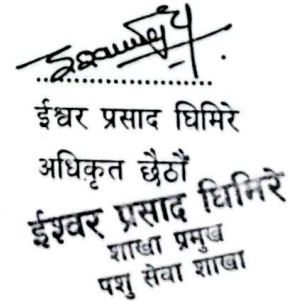 ईश्वर प्रसाद घिमिरे
अधिकृत छैठौं
ईश्वर प्रसाद घिमिरे
शाखा प्रमुख
पशु सेवा शाखा